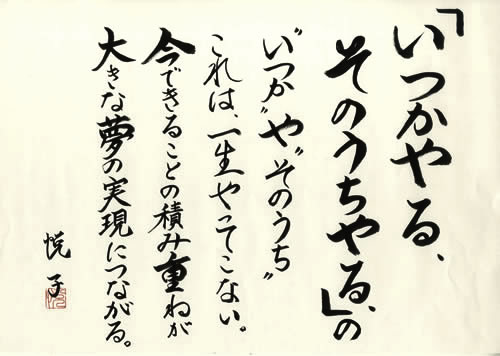 「いつかやる、
そのうちやる、」の
〝いつか〟や〝そのうち〟
これは、一生やってこない。
今できることの積み重ねが
大きな夢の実現につながる。
悦子